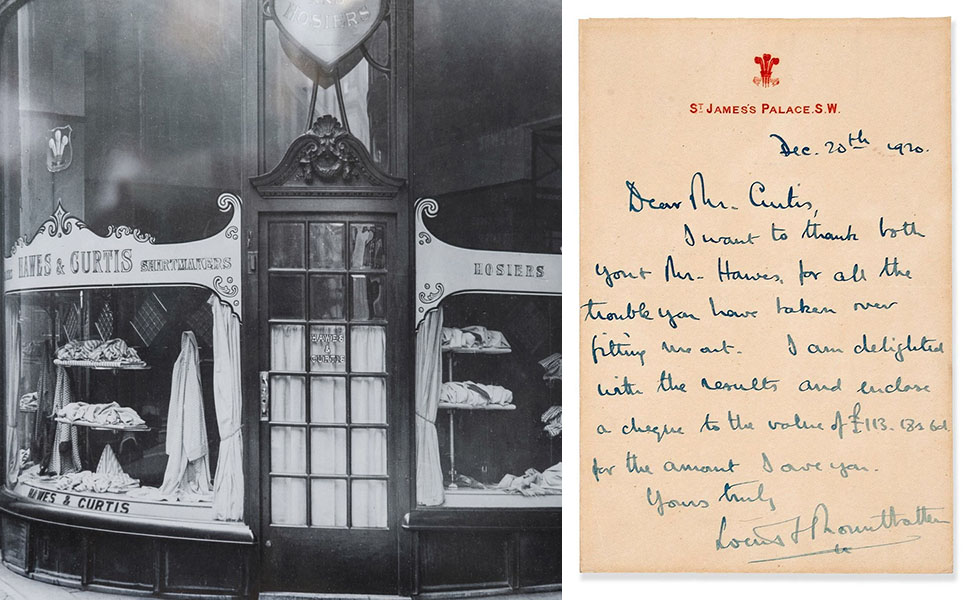 HOSIERS
HAWES & CURTIS SHIRTMAKERS
HOSIERS
HAWES
&
CURTIS
HAWES & CURTIS
ST JAMES'S PALACE. S.W.
Dec. 20th 1920.
Dear Mr. Curtis,
I want to thank both
you & Mr. Hawes, for all the
trouble you have taken over
fitting me out. I am delighted
with the results and enclose
a cheque to the value of £113. 13s 6d
for the amount I owe you.
Yours truly
Louis F Mountbatten